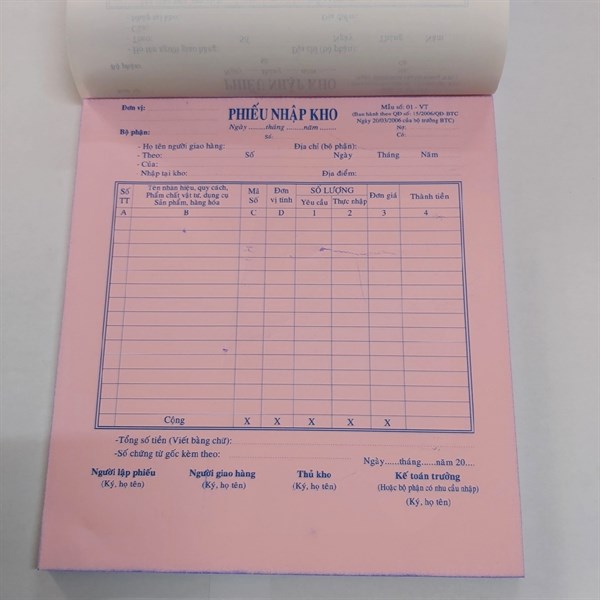 Đơn vị:
PHIẾU NHẬP KHO
Mẫu số: 01 - VT
(Ban hành theo QĐ số: 15/2006/QĐ-BTC
Ngày 20/03/2006 của bộ trưởng BTC)
Bộ phận:
Ngày ......tháng ......năm .......
Nợ:
Số.
Có:
- Họ tên người giao hàng:
Địa chỉ (bộ phận):
- Theo:
Số
Ngày
Tháng
Năm
- Của:
Nhập tại kho:
Địa điểm:
Số TT
Tên nhãn hiệu, quy cách, Phẩm chất vật tư, dụng cụ Sản phẩm, hàng hóa
Mã Số
Đơn vị tính
SỐ LƯỢNG
Yêu cầu
Thực nhập
Đơn giá
Thành tiền
A B C D 1 2 3 4
Cộng X X X X X
-Tổng số tiền (Viết bằng chữ):
-Số chứng từ gốc kèm theo:
Ngày......tháng......năm 20....
Người lập phiếu
(Ký, họ tên)
Người giao hàng
(Ký, họ tên)
Thủ kho
(Ký, họ tên)
Kế toán trưởng
(Hoặc bộ phận có nhu cầu nhập)
(Ký, họ tên)